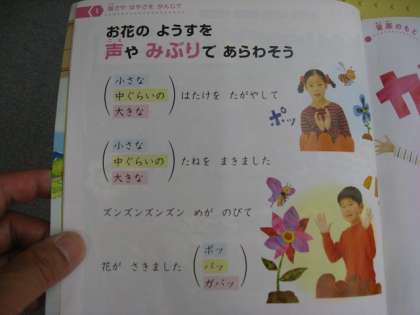 1 強さや はやさを かんじて
お花の ようすを
声や みぶりで あらわそう
こえ
小さな
中ぐらいの
大きな
はたけを たがやして
ポッ
小さな
中ぐらいの
大きな
たねを まきました
ズンズンズンズン めが のびて
花が さきました
ポッ
パッ
ガバッ
音楽のもと
か